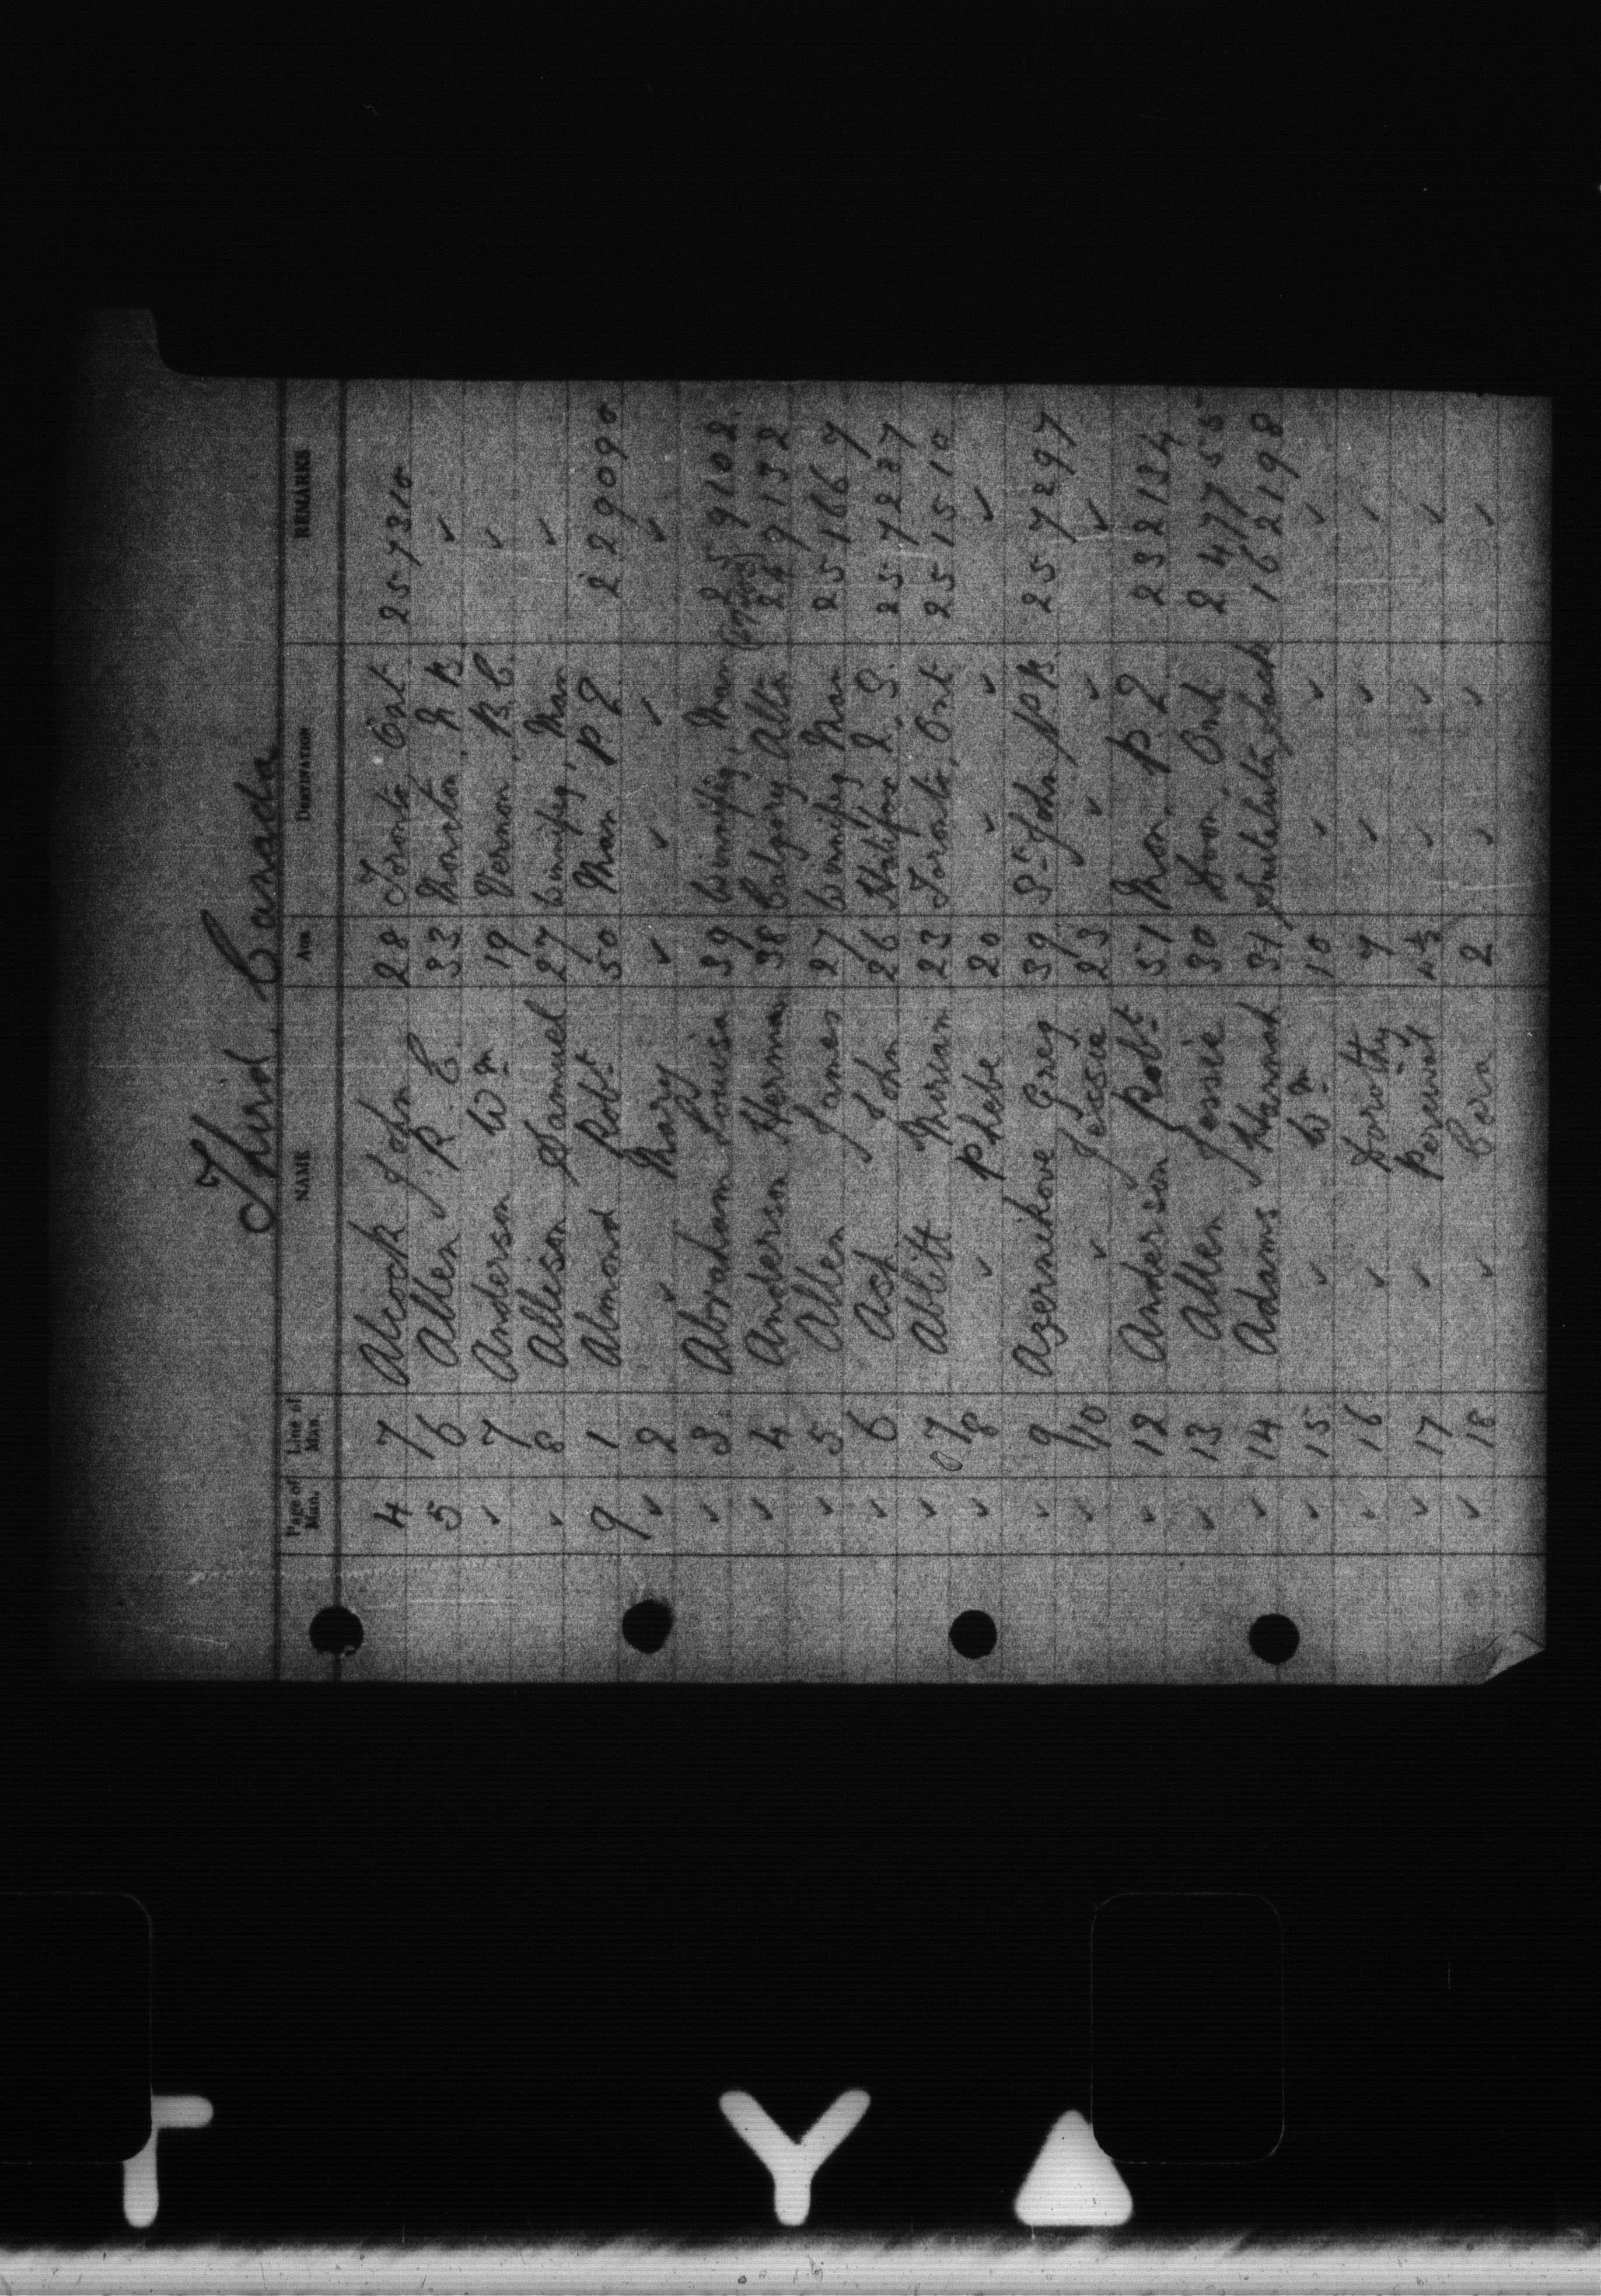 Third. Canada
Page of Man. Line of Man. NAME AGE DESTINATION REMARKS
4 7 Alcock John 28 Toronto Ont. 257310
5 6 Allen R. C. 33 Moncton. N B. ✓
✓ 7 Anderson Wm 19 Vernon. B.C. ✓
✓ 8 Allison Samuel 27 Winnipeg. Man ✓
9 1 Almond Robt 50 Mon P.Q. 229090
✓ 2 ✓ Mary ✓ ✓ ✓ ✓
✓ 3 Abraham Louisa 39 Winnipeg. Man 259102
✓ 4 Anderson Herman 38 Calgary Alta 229132
✓ 5 Allen James 27 Winnipeg Man 251667
✓ 6 Ash John 26 Halifax N. S. 257237
✓ 7 Ablitt Morean 23 Toronto. Ont 251510
✓ 8 ✓ Phebe 20 ✓ ✓ ✓
✓ 9 Azernikove Greg 39 St John N.B. 257297
✓ 10 ✓ Jessie 23 ✓ ✓ ✓
✓ 12 Anderson Robt 51 Mon. P. Q 232134
✓ 13 Allen Jessie 30 Ont 247755
✓ 14 Adams Hannah 31 Sask 162198
✓ 15 ✓ Wm 10 ✓ ✓ ✓
✓ 16 ✓ Dorothy 7 ✓ ✓ ✓
✓ 17 ✓ Percival 4½ ✓ ✓ ✓
✓ 18 ✓ Cora 2 ✓ ✓ ✓
Y